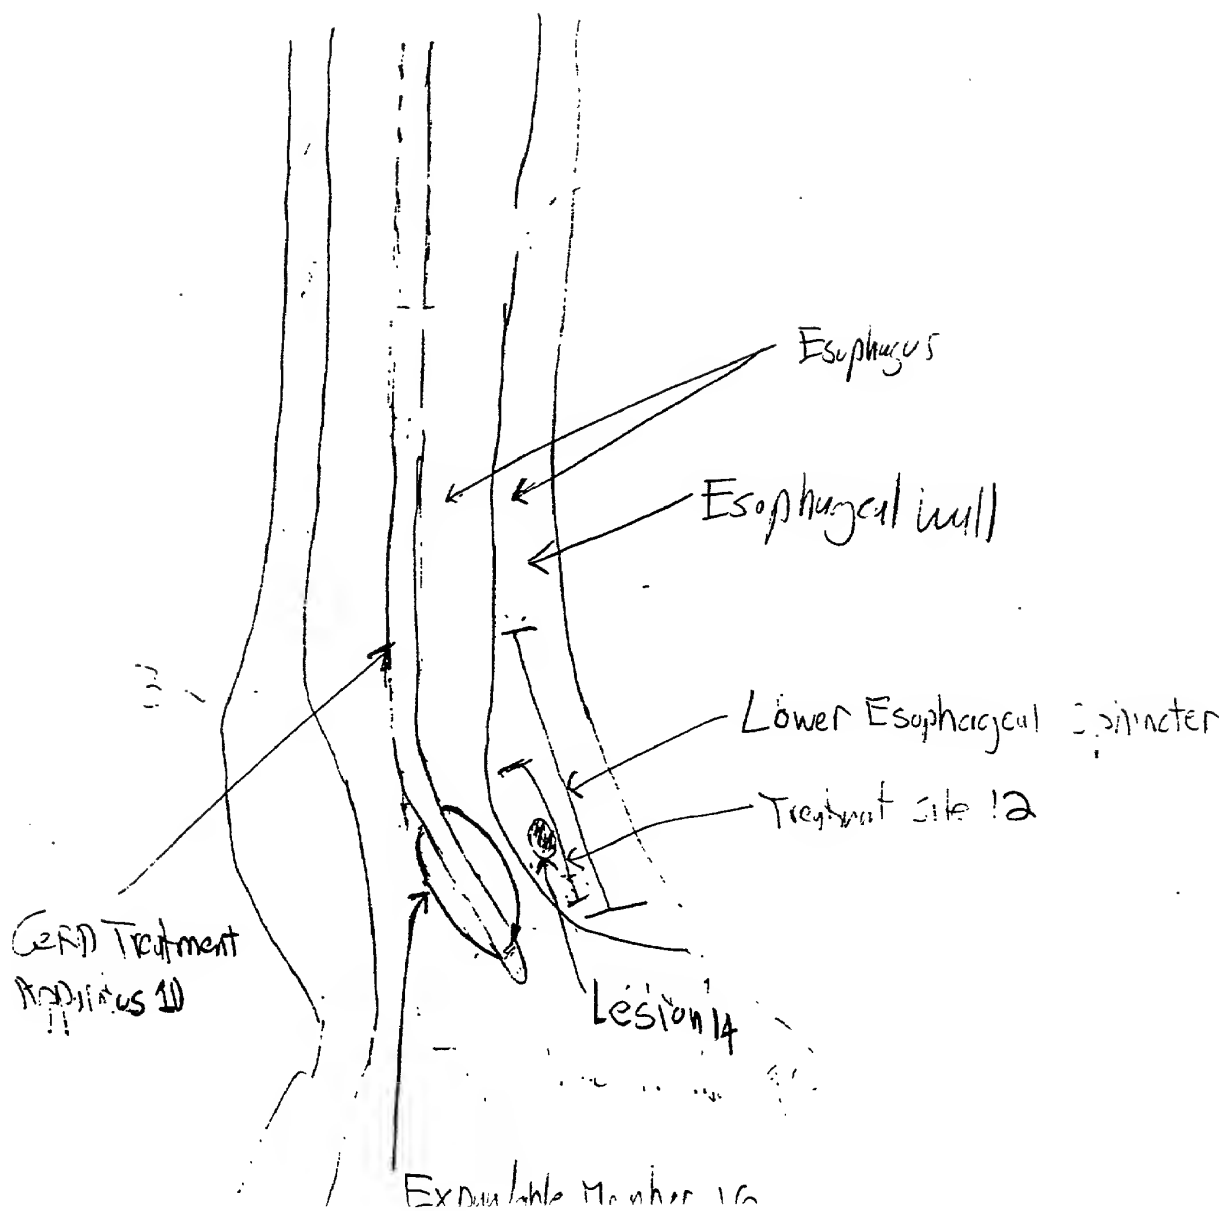 Esophagus
Esophageal wall
Lower Esophageal Sphincter
Treatment Site 12
GERD Treatment
Apparatus 10
Lesion 14
Expandable Member